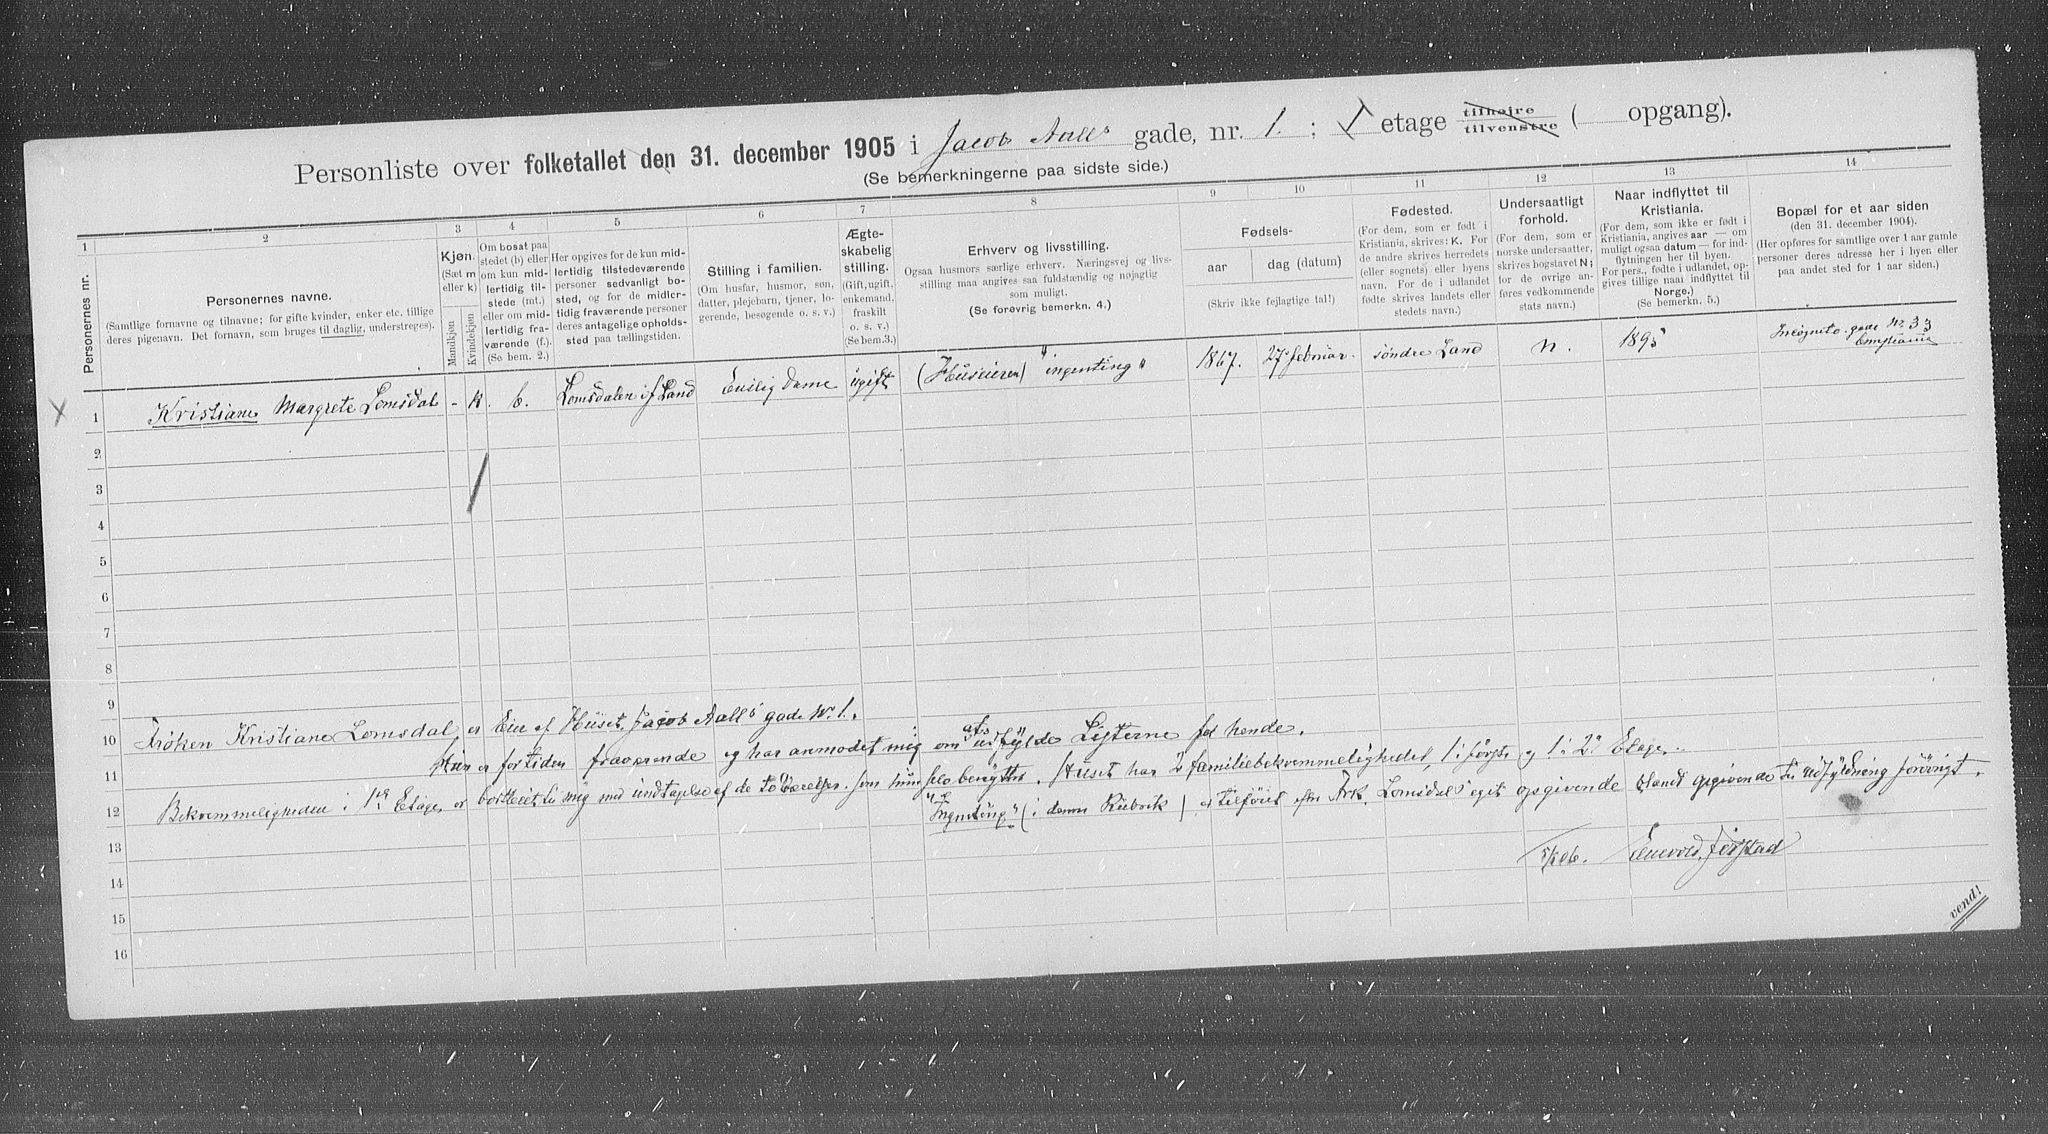 Personliste over folketallet den 31. december 1905 i Jacob Aalls gade, nr. 1. ; I etage tilhøire tilvenstre ( opgang).
(Se bemerkningerne paa sidste side.)
1 2 3 4 5 6 7 8 9 10 11 12 13 14
Personernes nr.
Personernes navne.
(Samtlige fornavne og tilnavne; for gifte kvinder, enker etc. tillige
deres pigenavn. Det fornavn, som bruges til daglig, understreges).
Kjøn.
(Sæt m
eller k)
Mandkjøn
Kvindekjøn
Om bosat paa
stedet (b) eller
om kun mid-
lertidig til-
stede (mt.)
eller om mid-
lertidig fra-
værende (f.)
(Se bem. 2.)
Her opgives for de kun mid-
lertidig tilstedeværende
personer sedvanligt bo-
sted, og for de midler-
tidig fraværende personer
deres antagelige opholds-
sted paa tællingstiden.
Stilling i familien.
(Om husfar, husmor, søn,
datter, plejebarn, tjener, lo-
gerende, besøgende o. s. v.)
Ægte-
skabelig
stilling.
(Gift, ugift,
enkemand,
fraskilt
o. s. v.)
(Se bem.3.)
Erhverv og livsstilling.
Ogsaa husmors særlige erhverv. Næringsvej og livs-
stilling maa angives saa fuldstændig og nøjagtig
som muligt.
(Se forøvrig bemerkn. 4.)
Fødsels-
aar dag (datum)
(Skriv ikke fejlagtige tal!)
Fødested.
(For dem, som er født i
Kristiania, skrives: K. For
de andre skrives herredets
(eller sognets) eller byens
navn. For de i udlandet
fødte skrives landets eller
stedets navn.)
Undersaatligt
forhold.
(For dem, som er
norske undersaatter,
skrives bogstavet N;
for de øvrige an-
føres vedkommende
stats navn.)
Naar indflyttet til
Kristiania.
(For dem, som ikke er født i
Kristiania, angives aar — om
muligt ogsaa datum — for ind-
flytningen her til byen.
For pers., fødte i udlandet, op-
gives tillige naar indflyttet til
Norge.)
(Se bemerkn. 5.)
Bopæl for et aar siden
(den 31. december 1904).
(Her opføres for samtlige over 1 aar gamle
personer deres adresse her i byen eller
paa andet sted for 1 aar siden.)
1 Kristiane Margrete Lomsdal - k. b. Lomsdalen i f Land Enslig Dame ugift (Huseier) "ingenting" 1867. 27 februar. søndre Land N. 1895 Incognito gade Nr. 33
2
3
4
5
6
7
8
9
10 Frøken Kristiane Lomsdal er Eier af Huset, Jacob Aalls gade Nr. 1.
11 Hun er for tiden fraværende og har anmodet mig om at udfylde Listerne for hende.
12 Bekvemmeligheden i 1ste Etage er bortleiet til mig med undtagelse af de to Værelser, som hun selv benytter. Huset har 2 familiebekvemmeligheder, 1 i første og 1 i 2den Etage.
13 "Ingenting" (i denne Rubrik) er tilføiet efter Frk. Lomsdals eget opgivende blandt opgivende til udfyldning forøvrigt.
14
15
16
vend!